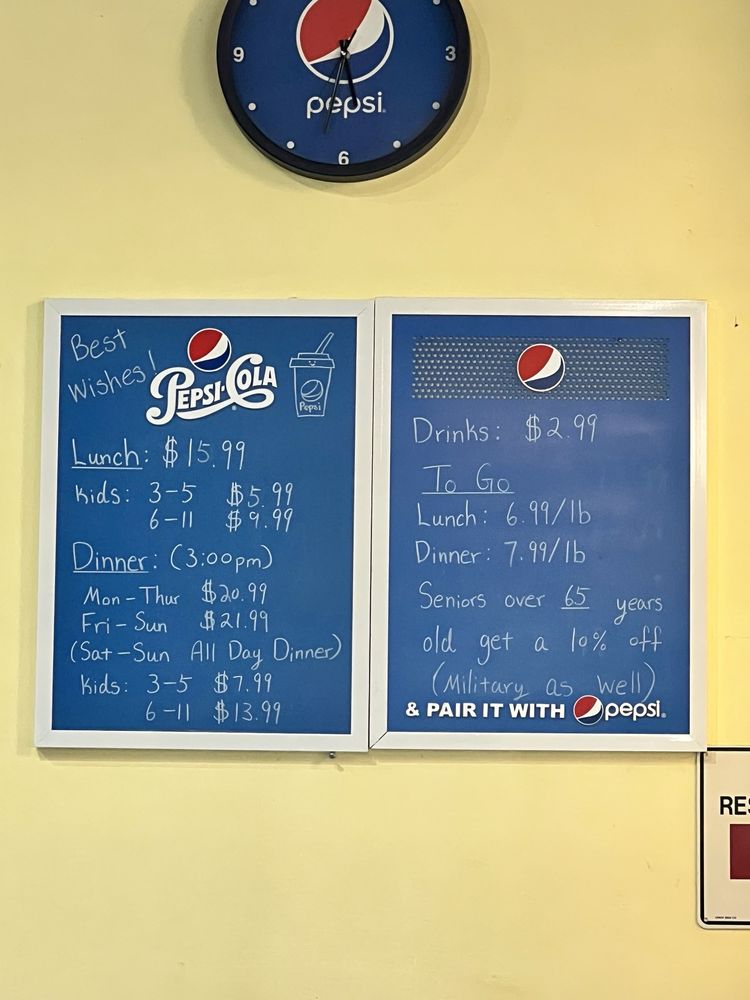 9
3
pepsi
6
Best
Wishes!
PEPSI-COLA
Pepsi
Lunch: $15.99
Kids: 3-5 $5.99
6-11 $9.99
Dinner: (3:00pm)
Mon-Thur $20.99
Fri-Sun $21.99
(Sat-Sun All Day Dinner)
Kids: 3-5 $7.99
6-11 $13.99
Drinks: $2.99
To Go
Lunch: 6.99/lb
Dinner: 7.99/lb
Seniors over 65 years
old get a 10% off
(Military as well)
& PAIR IT WITH pepsi
RES